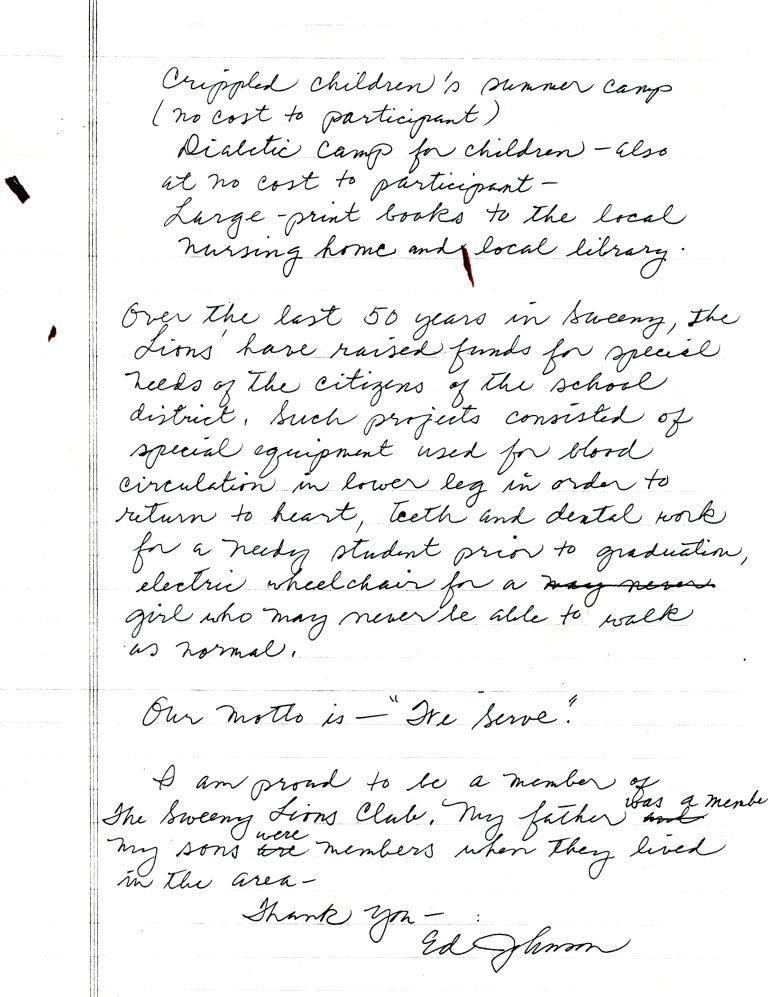 Crippled children's summer camp
(no cost to participant)
Diabetic camp for children - also
at no cost to participant -
Large-print books to the local
nursing home and local library.
Over the last 50 years in Sweeny, the
Lions' have raised funds for special
needs of the citizens of the school
district. Such projects consisted of
special equipment used for blood
circulation in lower leg in order to
return to heart, teeth and dental work
for a needy student prior to graduation,
electric wheelchair for a may never
girl who may never be able to walk
as normal.
Our motto is - "We Serve".
I am proud to be a member of
The Sweeny Lions Club. My father and was a membe
My sons are were members when they lived
in the area -
Thank you -
Ed Johnson